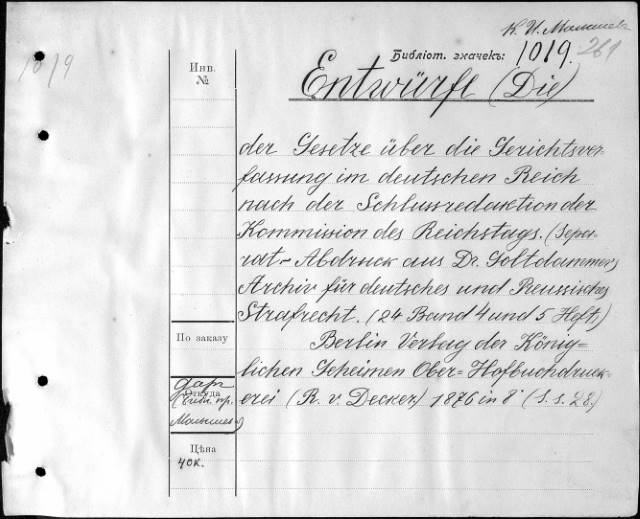 К. И. Малышев
1019
Инв.
№
Библіот. значекъ: 1019. 261
Entwürfe (Die)
der Gesetze über die Gerichtsver-
fassung im deutschen Reich
nach der Schlussredaktion der
Kommission des Reichstags. (Sepa-
rat-Abdruck aus Dr. Goltdammers
Archiv für deutsches und Preussisches
Strafrecht. (24 Band 4 und 5 Heft.)
Berlin Verlag der König-
lichen Geheimen Ober-Hofbuchdruck-
erei (R. v. Decker) 1876 in 8° (S. s. 28.)
По заказу
даръ
Откуда
Малышева)
Цѣна
40к.